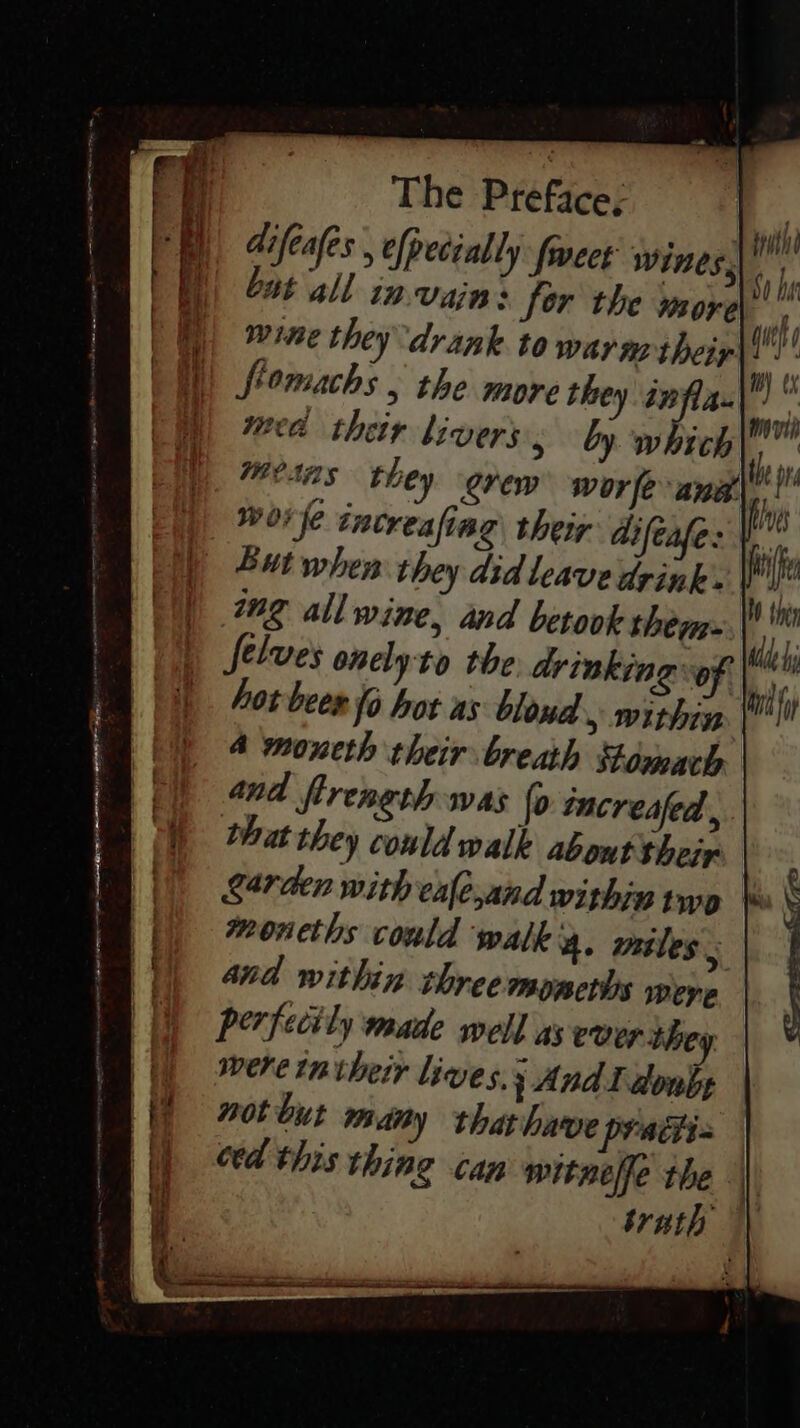 The Preface.
diſeaſes, eſpecially ſweet wines,
but all in vain: for the more
wine they drank to warm their
ſtomachs, the more they infla-
med their livers, by which
means they grew worſe and
worſe increaſing their diſeaſe:
But when they did leave drink-
ing all wine, and betook them-
ſelves onely to the drinking of
hot beer ſo hot as bloud, within
a moneth their breath stomach
and ſtrength was ſo increaſed,
that they could walk about their
garden with eaſe, and within two
moneths could walk 4. miles,
and within three moneths were
perfectly made well as ever they
were in their lives. And I doubt
not but many that have practi-
ced this thing can witneſſe the
truth